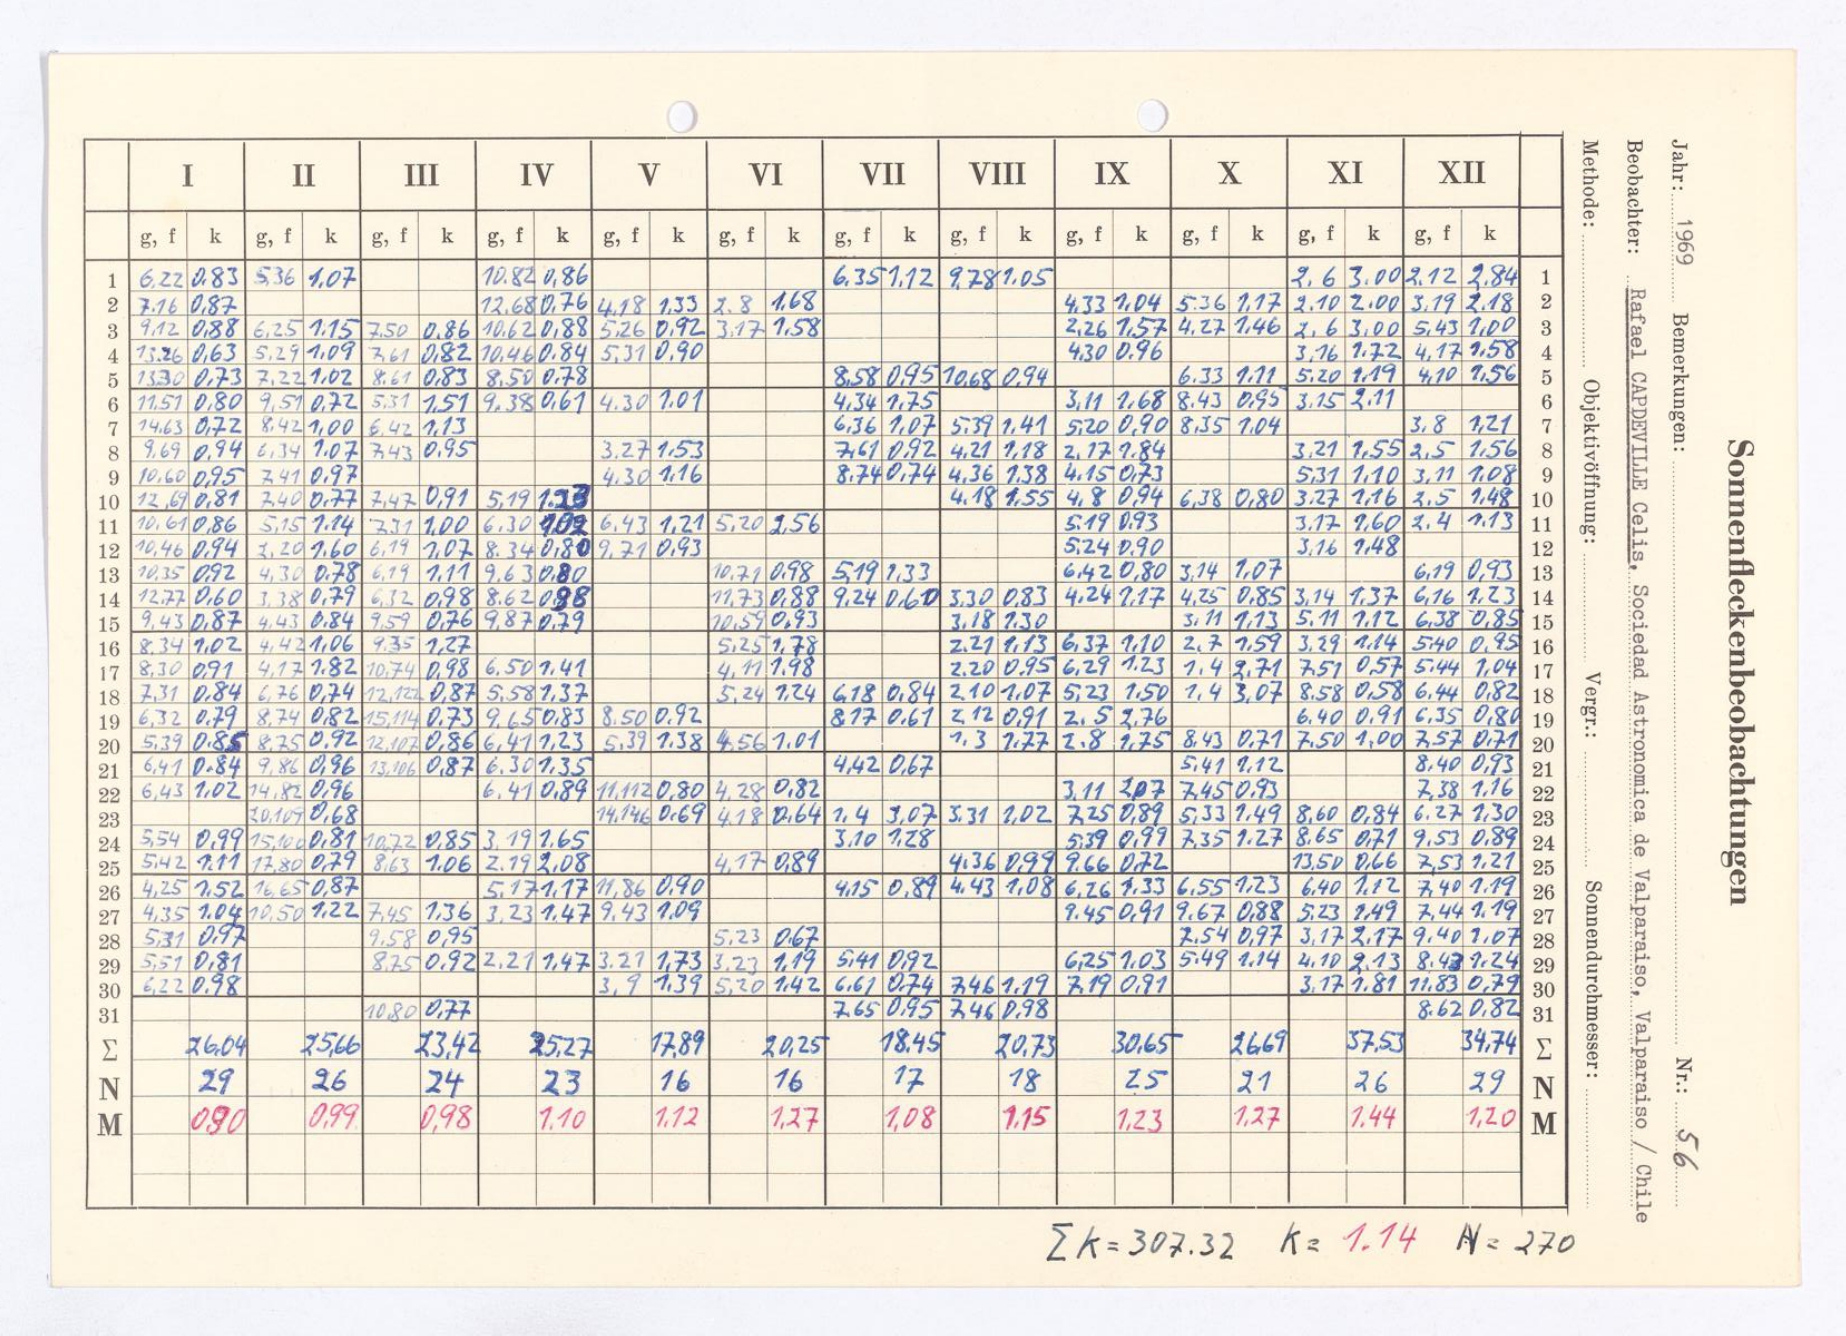 I II III IV V VI VII VIII IX X XI XII
g, f k g, f k g, f k g, f k g, f k g, f k g, f k g, f k g, f k g, f k g, f k g, f k
1 6.22 0.83 5.36 1.07 10.82 0,86 6.35 1,12 9,78 1.05 2.6 3.00 2.12 2,84 1
2 7.16 0,87 12.68 0,76 4,18 1,33 2.8 1,68 4,33 1,04 5.36 1,17 2.10 2.00 3,19 2.18 2
3 9,12 0,88 6,25 1.15 7.50 0,86 10,62 0,88 5,26 0,92 3,17 1,58 2,26 1,57 4,27 1,46 2,6 3,00 5,43 1,00 3
4 13.26 0,63 5,29 1,09 7,61 0,82 10,46 0.84 5,31 0,90 4.30 0.96 3,16 1.72 4,17 1,58 4
5 13.30 0,73 7,22 1,02 8.61 0,83 8,50 0.78 8,58 0,95 10,68 0,94 6.33 1,11 5.20 1,19 4,10 1,56 5
6 11.51 0,80 9,51 0,72 5,31 1,51 9,38 0,61 4.30 1.01 4,34 1,75 3,11 1,68 8.43 0,95 3.15 2.11 6
7 14.63 0,72 8,42 1,00 6,42 1,13 6,36 1,07 5,39 1,41 5,20 0,90 8,35 1.04 3,8 1,21 7
8 9,69 0,94 6,34 1.07 7,43 0,95 3,27 1,53 7,61 0,92 4,21 1,18 2,17 1,84 3,21 1,55 2,5 1,56 8
9 10,60 0,95 7,41 0,97 4.30 1,16 8.74 0,74 4,36 1,38 4.15 0,73 5,31 1,10 3,11 1,08 9
10 12,69 0,81 7,40 0,77 7,47 0,91 5,19 1.23 4.18 1.55 4,8 0,94 6,38 0,80 3.27 1,16 2,5 1,48 10
11 10,61 0,86 5,15 1.14 7.31 1,00 6.30 1,02 6,43 1,21 5,20 2,56 5,19 0,93 3,17 1,60 2.4 1.13 11
12 10,46 0,94 2,20 1,60 6,19 1,07 8.34 0,80 9,71 0,93 5,24 0,90 3,16 1,48 12
13 10,35 0,92 4,30 0.78 6,19 1.11 9.63 0.80 10,71 0,98 5,19 1,33 6.42 0,80 3,14 1,07 6,19 0,93 13
14 12,77 0,60 3,38 0,79 6,32 0,98 8.62 0,98 11,73 0,88 9,24 0,60 3,30 0,83 4,24 1,17 4,25 0,85 3,14 1,37 6,16 1,23 14
15 9,43 0,87 4,43 0,84 9,59 0,76 9,87 0,79 10,59 0,93 3,18 1.30 3,11 1,13 5.11 1,12 6,38 0,85 15
16 8.34 1,02 4,42 1,06 9,35 1,27 5,25 1,78 2.21 1,13 6,37 1,10 2.7 1,59 3.29 1.14 5.40 0,95 16
17 8,30 0,91 4,17 1.82 10,74 0,98 6.50 1.41 4,11 1.98 2.20 0.95 6,29 1.23 1,4 2,71 7,51 0,57 5.44 1,04 17
18 7,31 0,84 6,76 0,74 12,122 0,87 5.58 1.37 5,24 1,24 6,18 0,84 2.10 1,07 5,23 1,50 1,4 3,07 8,58 0,58 6,44 0,82 18
19 6,32 0,79 8,74 0,82 15,114 0,73 9,65 0,83 8.50 0.92 8.17 0.61 2,12 0,91 2.5 2,76 6.40 0,91 6,35 0,80 19
20 5,39 0.85 8,75 0,92 12,107 0,86 6,41 1,23 5,39 1.38 4,56 1.01 1.3 1,77 2.8 1,75 8.43 0,71 7,50 1,00 7,57 0,71 20
21 6,41 0.84 9,86 0,96 13,106 0,87 6.30 1,35 4,42 0,67 5,41 1,12 8,40 0,93 21
22 6,43 1,02 14,82 0,96 6.41 0,89 11,112 0,80 4,28 0,82 3,11 2,07 7,45 0,93 7,38 1,16 22
23 20,109 0,68 14,146 0.69 4,18 0.64 1.4 3,07 3.31 1,02 7,25 0,89 5,33 1,49 8,60 0,84 6,27 1,30 23
24 5,54 0,99 15,100 0,81 10,72 0,85 3,19 1.65 3,10 1,28 5,39 0,99 7,35 1,27 8,65 0,71 9,53 0,89 24
25 5,42 1.11 17,80 0,79 8,63 1.06 2.19 2,08 4,17 0,89 4.36 0,99 9.66 0,72 13,50 0,66 7,53 1.21 25
26 4,25 1,52 16,65 0,87 5.17 1.17 11,86 0,90 4.15 0,89 4.43 1,08 6,26 1,33 6,55 1.23 6,40 1.12 7,40 1,19 26
27 4,35 1.04 10,50 1,22 7,45 1,36 3,23 1.47 9,43 1.09 9.45 0,91 9.67 0,88 5,23 1,49 7,44 1.19 27
28 5,31 0,97 9,58 0,95 5,23 0.67 7.54 0,97 3,17 2,17 9.40 1.07 28
29 5,51 0,81 8,75 0,92 2.21 1,47 3.21 1,73 3.23 1,19 5,41 0,92 6,25 1.03 5,49 1.14 4.10 2,13 8.43 1.24 29
30 6,22 0.98 3,9 1,39 5,20 1.42 6.61 0,74 7,46 1,19 7,19 0,91 3,17 1,81 11,83 0,79 30
31 10,80 0,77 7.65 0,95 7,46 0,98 8.62 0,82 31
Σ 26,04 25,66 23,42 25,27 17,89 20,25 18.45 20,73 30,65 26,69 37,53 34,74 Σ
N 29 26 24 23 16 16 17 18 25 21 26 29 N
M 0,90 0,99 0,98 1.10 1,12 1,27 1,08 1,15 1,23 1,27 1,44 1,20 M
Σ k = 307.32 K = 1.14 N = 270
Sonnenfleckenbeobachtungen
Jahr: 1969 Bemerkungen: Nr.: 56
Beobachter: Rafael CAPDEVILLE Celis, Sociedad Astronomica de Valparaiso, Valparaiso / Chile
Methode: Objektivöffnung: Vergr.: Sonnendurchmesser: